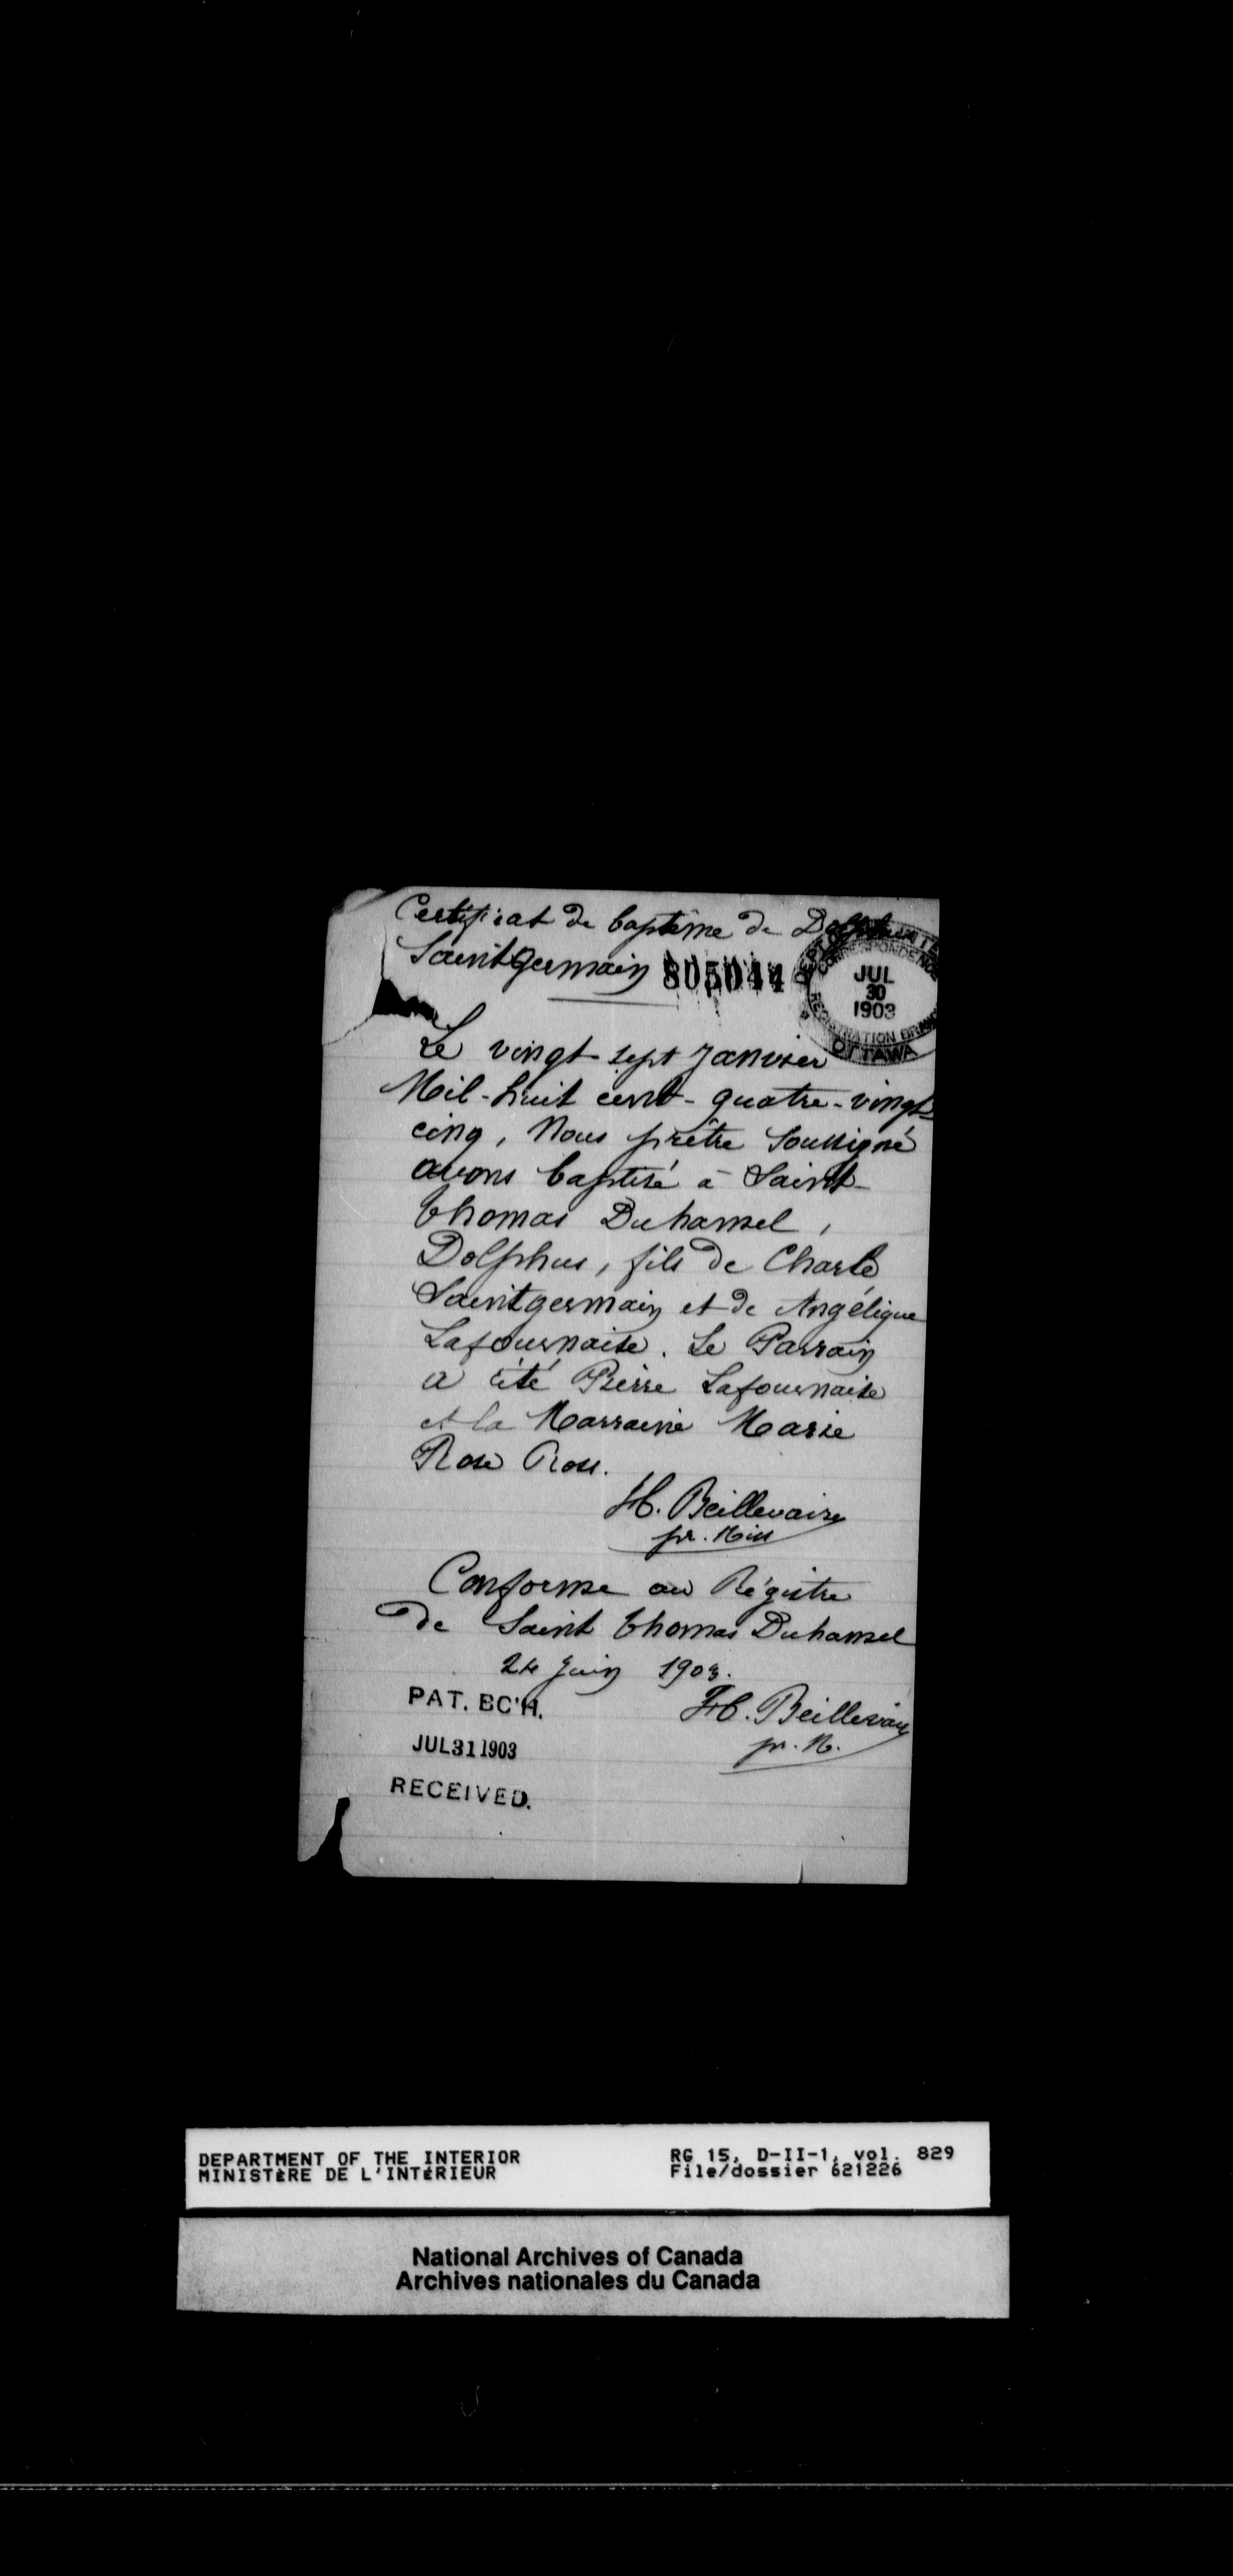 Certificat de baptême de Dolphus
Saintgermain 805044
DEPT OF INTE
CORRESPONDENCE
JUL
30
1903
REGISTRATION BRAN
OTTAWA
Le vingt-sept Janvier
Mil-huit cent-quatre-vingt
cinq, Nous prêtre Soussigné
avons baptisé à Saint-
Thomas Duhamel,
Dolphus, fils de Charle
Saintgermain et de Angélique
Lafournaise. Le Parrain
a été Pierre Lafournaise
et la Marraine Marie
Rose Ross.
H. Beillevaire
pr. Miss
Conforme au Régistre
de Saint Thomas Duhamel
24 Juin 1903.
H. Beillevaire
pr. M.
PAT. BC'H.
JUL 31 1903
RECEIVED.
DEPARTMENT OF THE INTERIOR RG 15, D-II-1, vol. 829
MINISTÈRE DE L'INTÉRIEUR File/dossier 621226
National Archives of Canada
Archives nationales du Canada